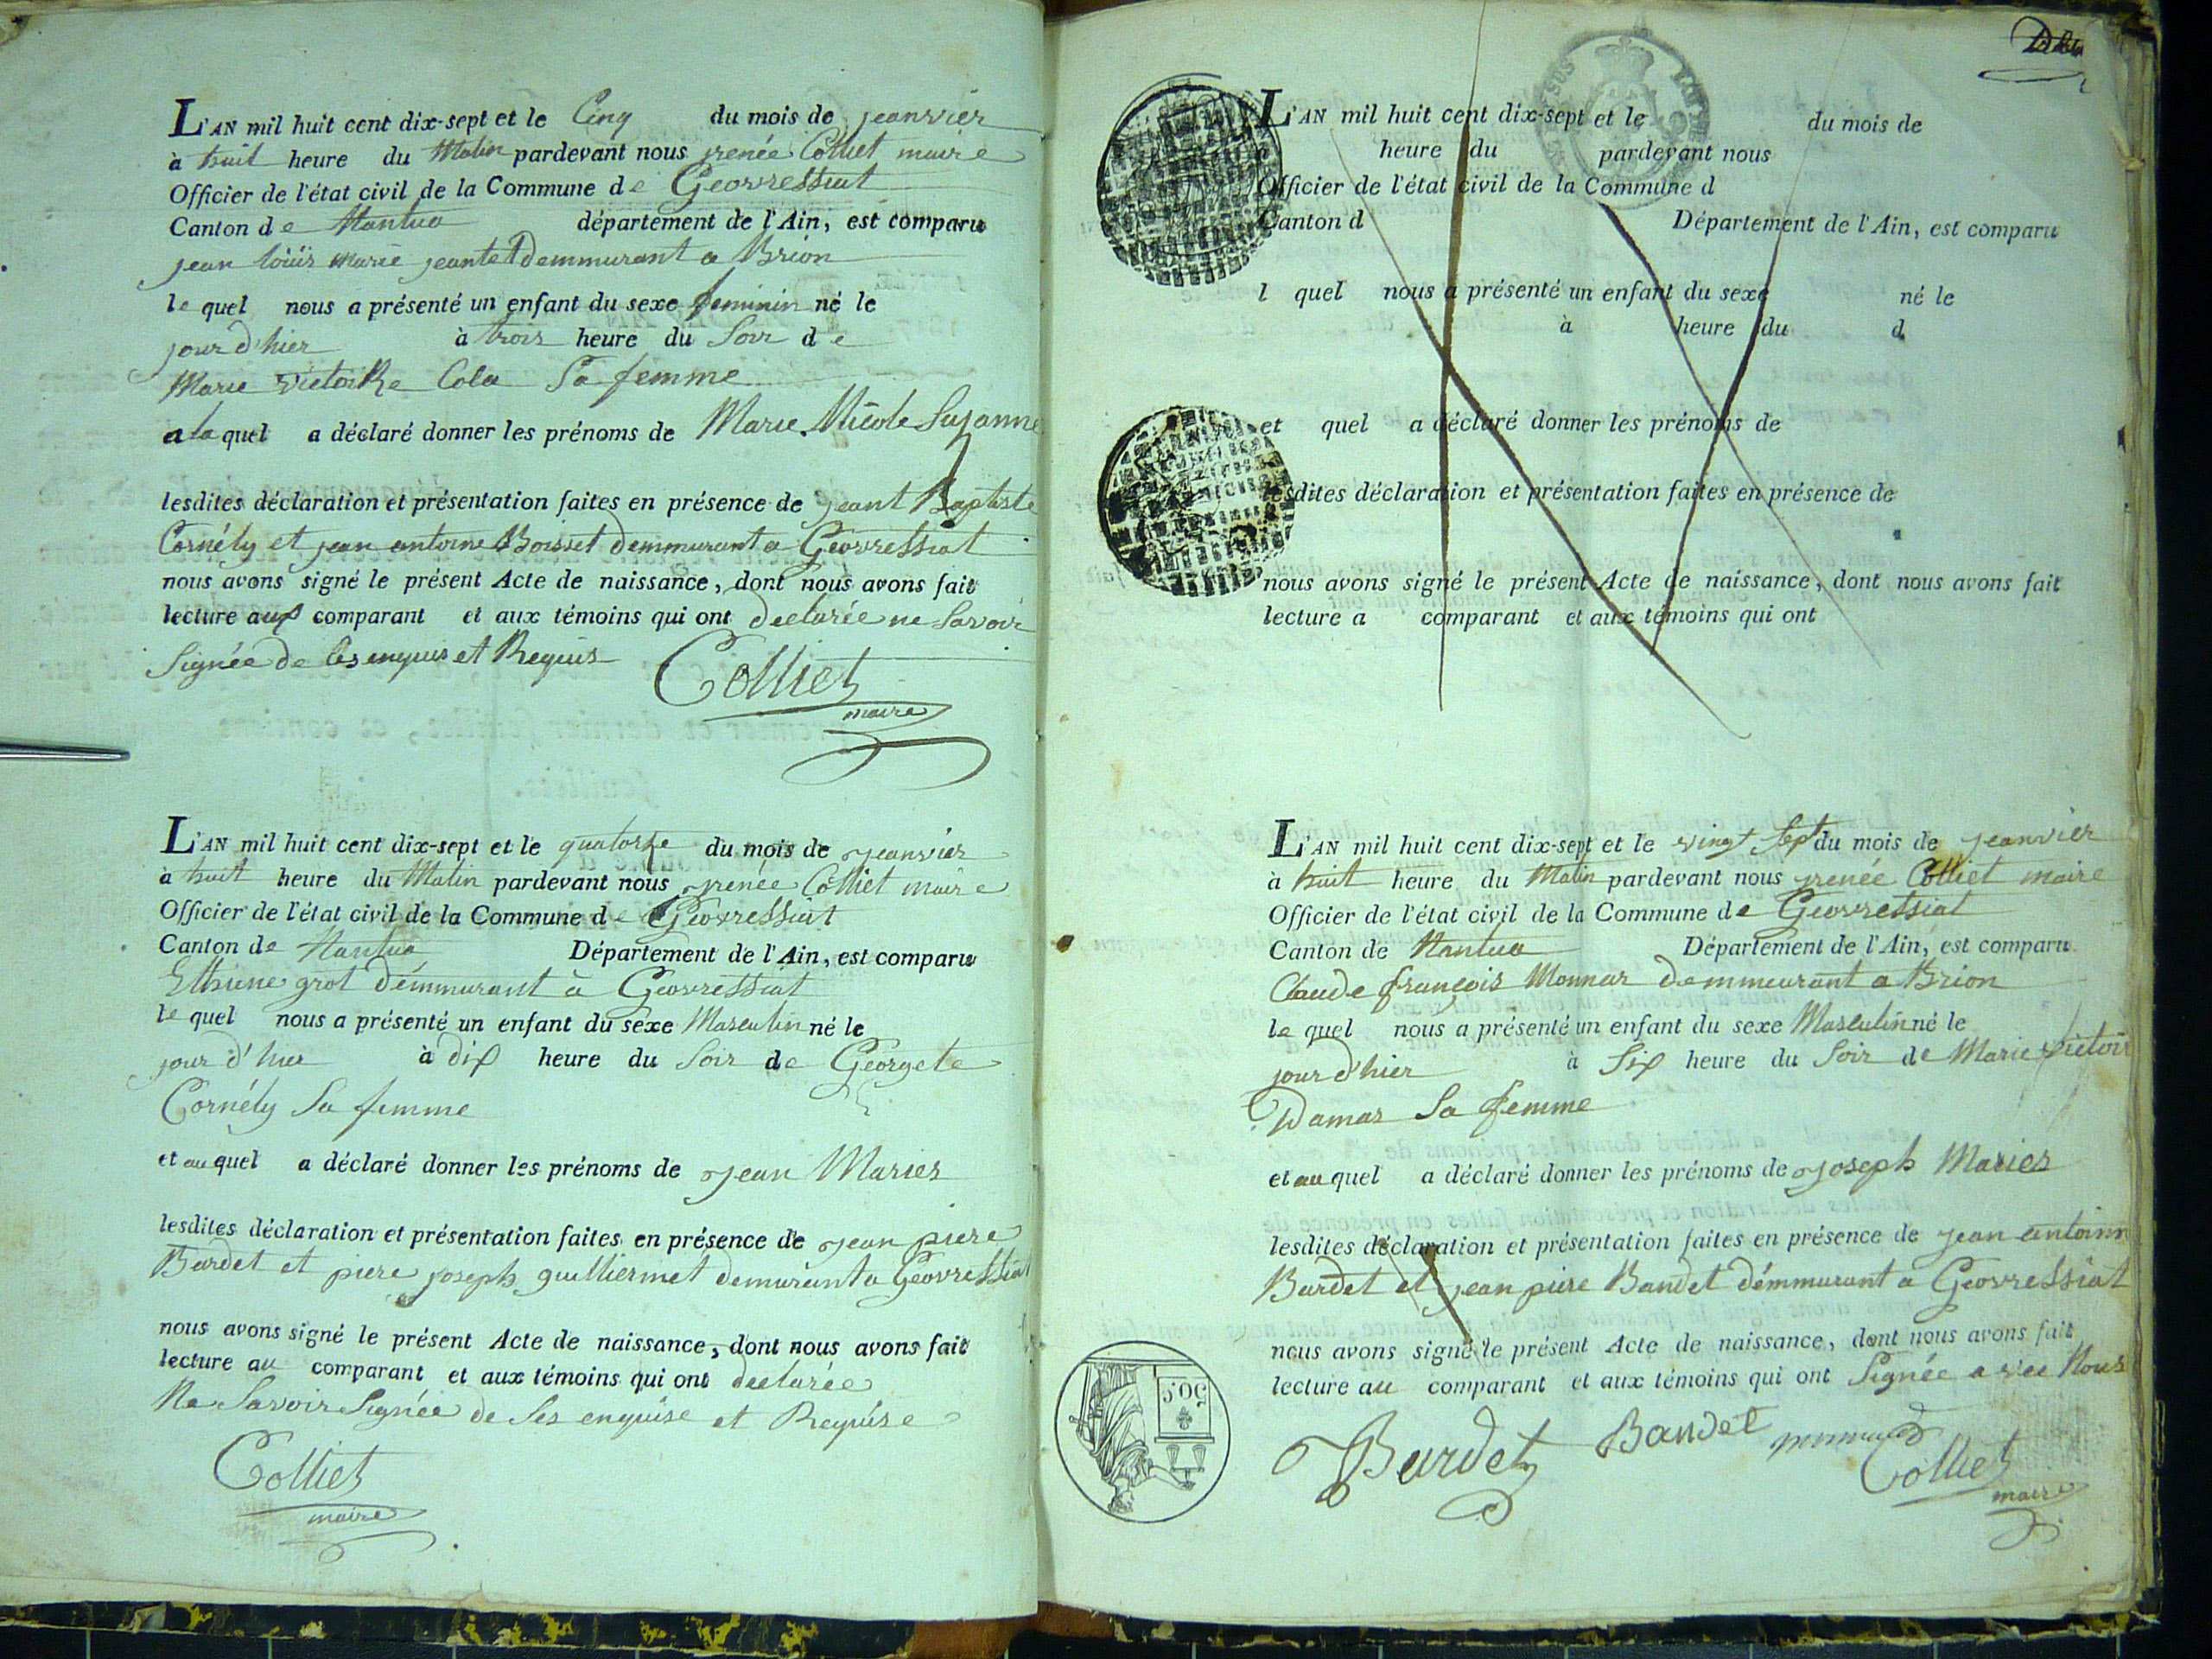 L'AN mil huit cent dix-sept et le Cinq du mois de jeanvier
à huit heure du Matin pardevant nous renée Colliet maire
Officier de l'état civil de la Commune de Geovressiat
Canton de Nantua département de l'Ain, est comparu
jean loüis marie jeantet demmurant a Brion
le quel nous a présenté un enfant du sexe feminin né le
jour d'hier à trois heure du Soir de
Marie victoire Cola Sa femme
a la quel a déclaré donner les prénoms de Marie Nicole Suzanne
lesdites déclaration et présentation faites en présence de jeant Baptiste
Cornély et jean antoine Boisset demmurant a Geovressiat
nous avons signé le présent Acte de naissance, dont nous avons fait
lecture aux comparant et aux témoins qui ont declarée ne Savoir
Signée de enquis et Requis
Colliet
maire
L'AN mil huit cent dix-sept et le quatorze du mois de jeanvier
à huit heure du Matin pardevant nous renée Colliet maire
Officier de l'état civil de la Commune de Geovressiat
Canton de Nantua Département de l'Ain, est comparu
Ethiene grot démmurant à Geovressiat
le quel nous a présenté un enfant du sexe Masculin né le
jour d'hier à dix heure du Soir de Georgete
Cornély Sa femme
et au quel a déclaré donner les prénoms de jean Maries
lesdites déclaration et présentation faites en présence de jean piere
Burdet et piere joseph guilliermet demurant a Geovressiat
nous avons signé le présent Acte de naissance, dont nous avons fait
lecture au comparant et aux témoins qui ont declarée
Ne Savoir Signée de Ses enquise et Requise
Colliet
maire
L'AN mil huit cent dix-sept et le du mois de
heure du pardevant nous
Officier de l'état civil de la Commune d
Canton d Département de l'Ain, est comparu
l quel nous a présenté un enfant du sexe né le
à heure du d
et quel a déclaré donner les prénoms de
lesdites déclaration et présentation faites en présence de
nous avons signé le présent Acte de naissance, dont nous avons fait
lecture a comparant et aux témoins qui ont
L'AN mil huit cent dix-sept et le vingt Sept du mois de jeanvier
à huit heure du Matin pardevant nous renée Colliet maire
Officier de l'état civil de la Commune de Geovressiat
Canton de Nantua Département de l'Ain, est comparu
Claude françois Monnar demmeurant a Brion
le quel nous a présenté un enfant du sexe Masculin né le
jour d'hier à Six heure du Soir de Marie victoir
Damas Sa femme
et au quel a déclaré donner les prénoms de joseph Maries
lesdites déclaration et présentation faites en présence de jean antoinn
Burdet et jean piere Bandet démmurant a Geovressiat
nous avons signé le présent Acte de naissance, dont nous avons fait
lecture au comparant et aux témoins qui ont Signée avec Nous
Burdet Bandet
Colliet
maire
50.c